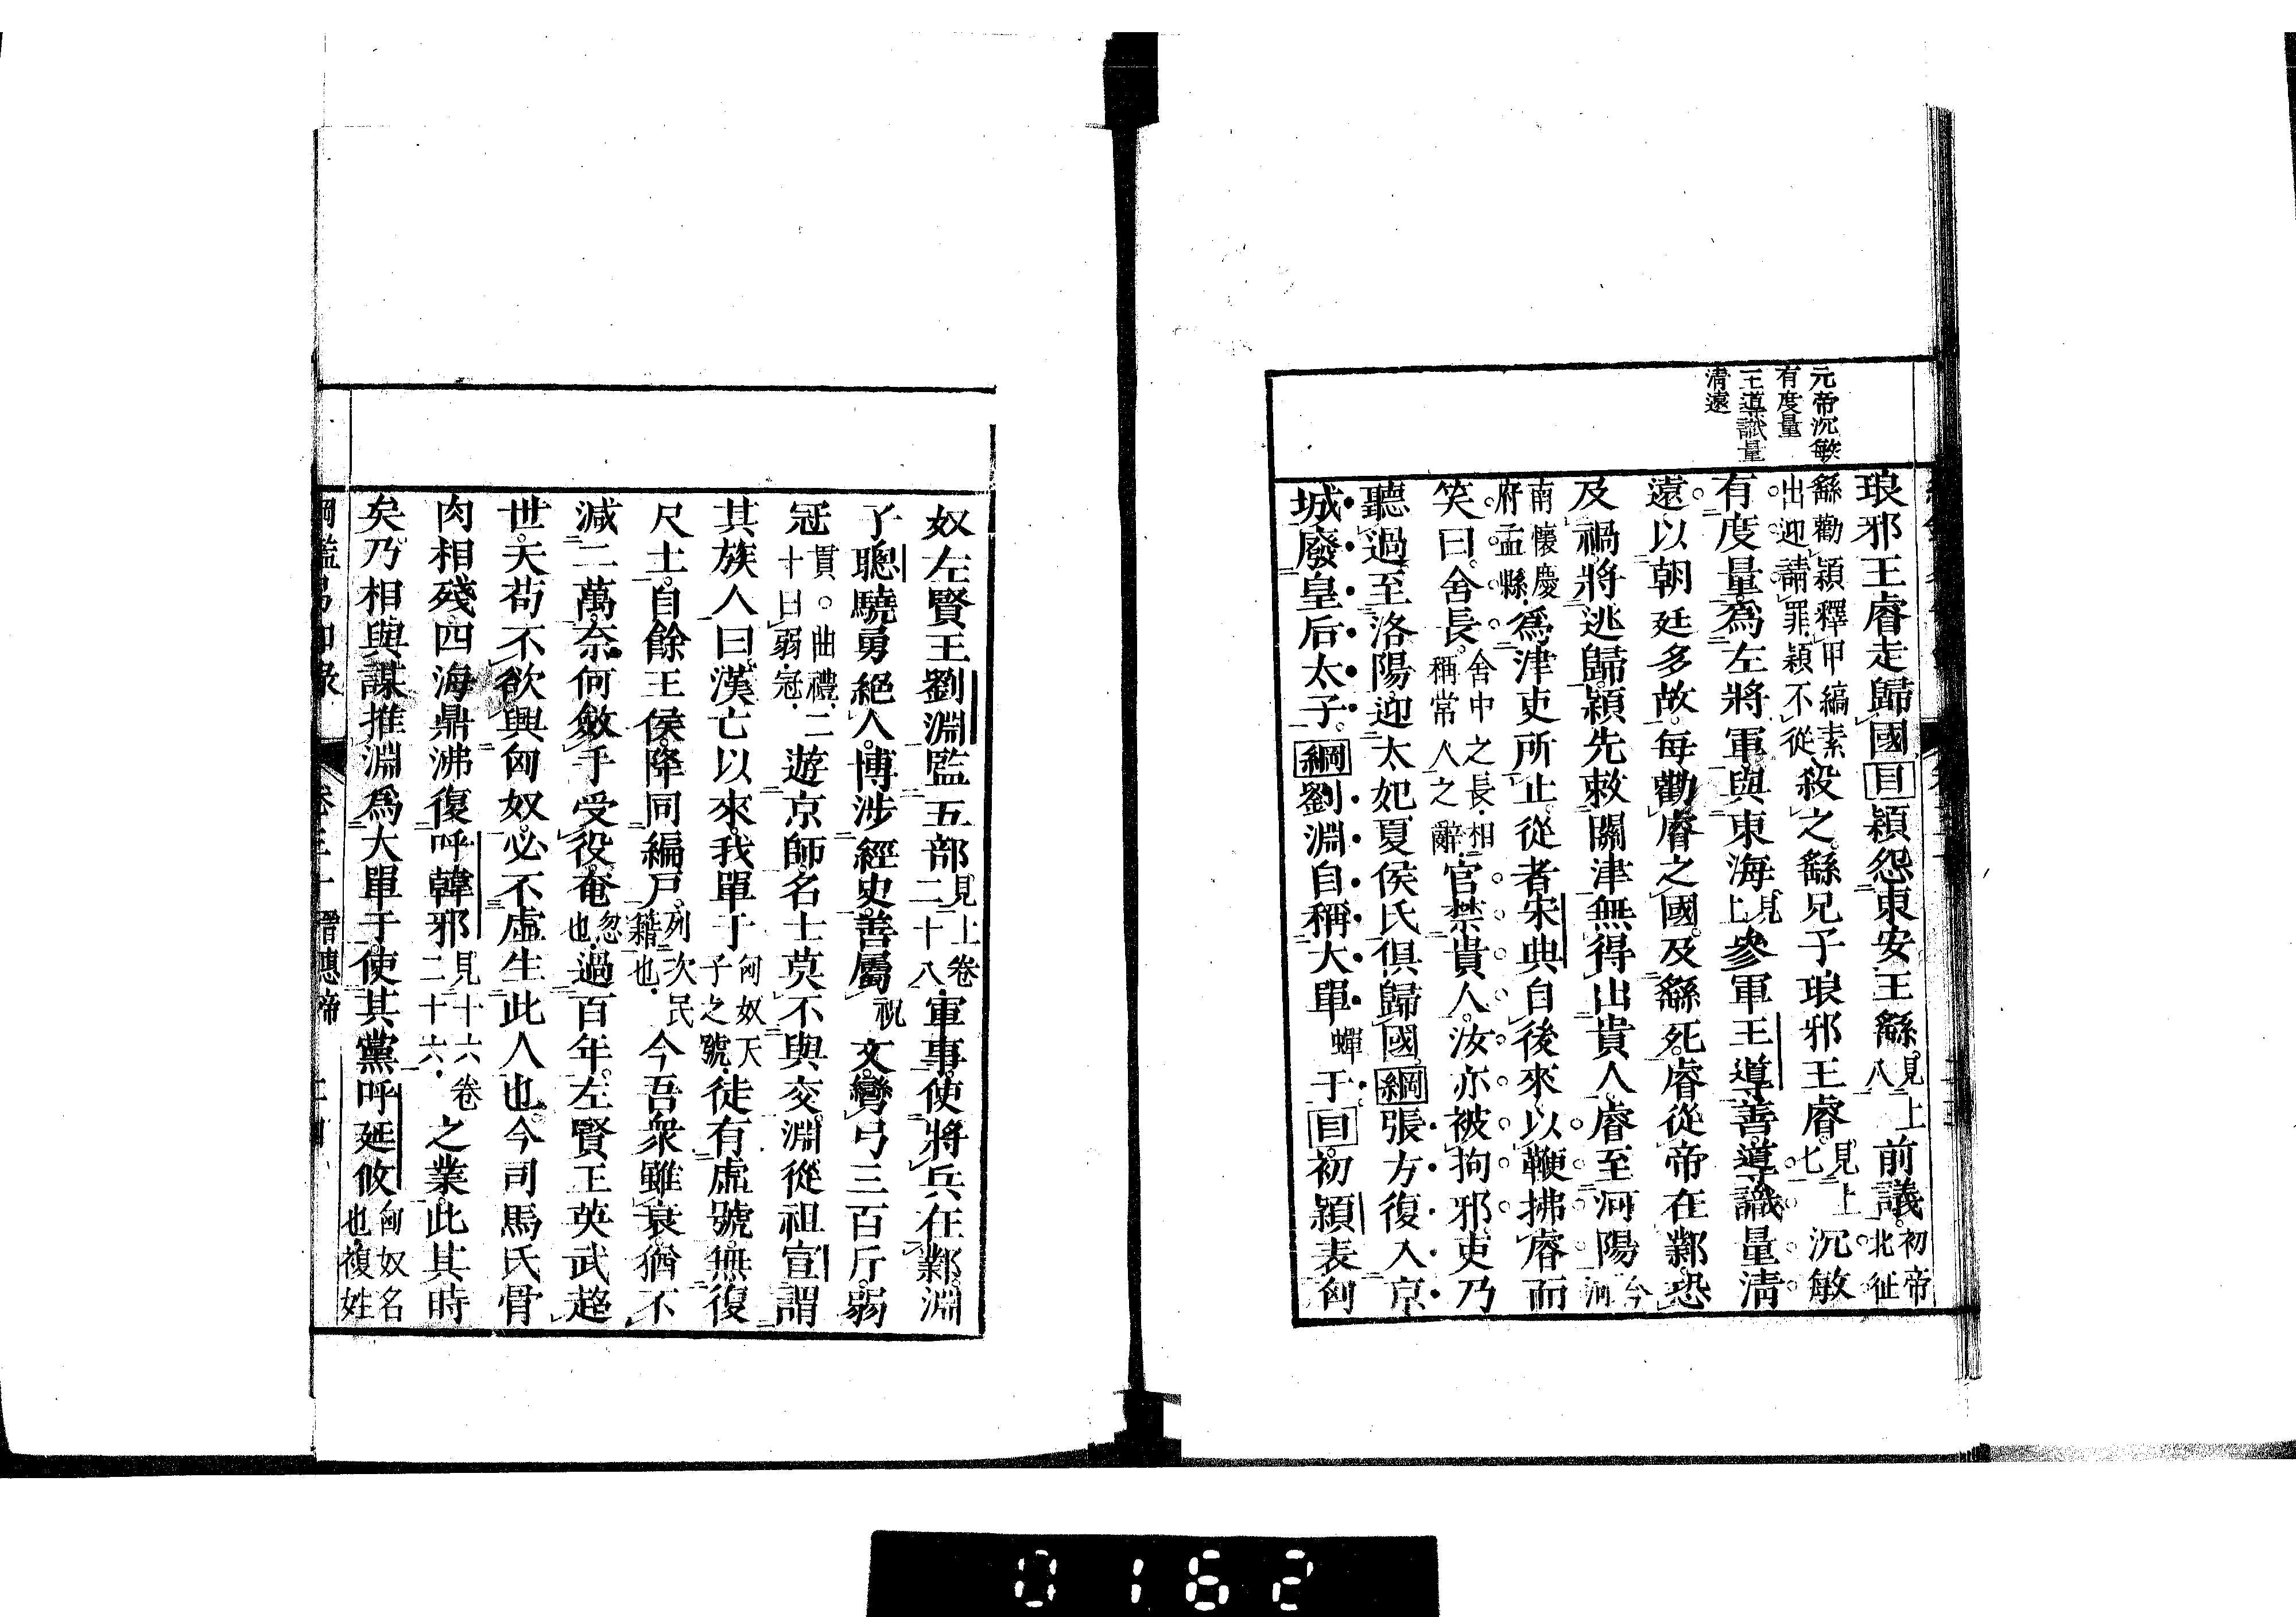 元帝沉敏
有度量
王導識量
清遠
琅邪王睿走歸國目穎怨東安王繇見上八前議初帝北征
繇勸穎釋甲縞素出迎請罪穎不從殺之繇兄子琅邪王睿見上七沉敏
有度量爲左將軍與東海見上參軍王導善導識量清
遠以朝廷多故每勸睿之國及繇死睿從帝在鄴恐
及禍將逃歸穎先敕關津無得出貴人睿至河陽今河
南懷慶府孟縣爲津吏所止從者宋典自後來以鞭拂睿而
笑曰舍長舍中之長相稱常人之辭官禁貴人汝亦被拘邪吏乃
聽過至洛陽迎太妃夏侯氏俱歸國綱張方復入京
城廢皇后太子綱劉淵自稱大單蟬于目初穎表匈
奴左賢王劉淵監五部見上卷二十八軍事使將兵在鄴淵
子聰驍勇絕人博涉經史善屬祝文彎弓三百斤弱
冠貫○曲禮二十曰弱冠遊京師名士莫不與交淵從祖宣謂
其族人曰漢亡以來我單于匈奴天子之號徒有虛號無復
尺土自餘王侯降同編戶列次民籍也今吾衆雖衰猶不
減二萬奈何斂手受役奄忽也過百年左賢王英武超
世天苟不欲興匈奴必不虛生此人也今司馬氏骨
肉相殘四海鼎沸復呼韓邪見十六卷二十六之業此其時
矣乃相與謀推淵爲大單于使其黨呼延攸匈奴名也複姓
綱鑑易知錄 卷三十 晉惠帝
0162